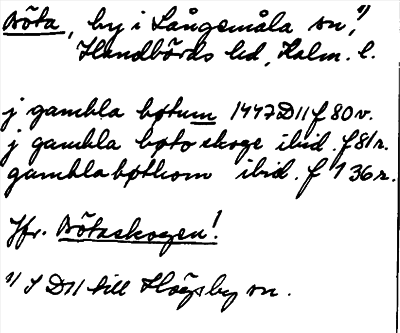 Böta, by i Långemåla sn,¹⁾
Handbörds hd, Kalm. l.
j gambla bøtum 1447 D11 f 80 v.
j gambla bøto skoge ibid. f 81 r.
gambla bøthom ibid. f 136 r.
Jfr. Bötaskogen!
¹⁾ I D11 till Högsby sn.